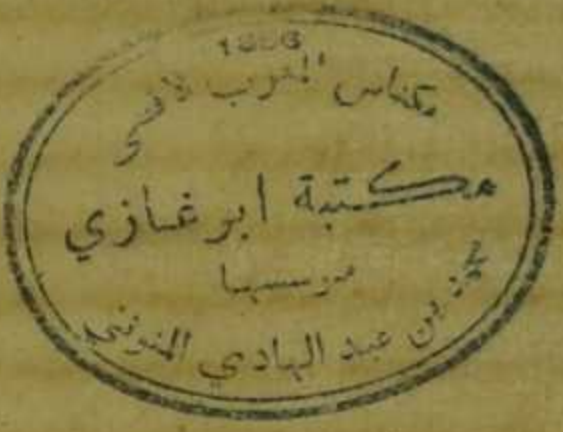 مكناس المغرب الاقصى
مكتبة ابن غازي
موسسها
محمد بن عبد الهادي المنوني